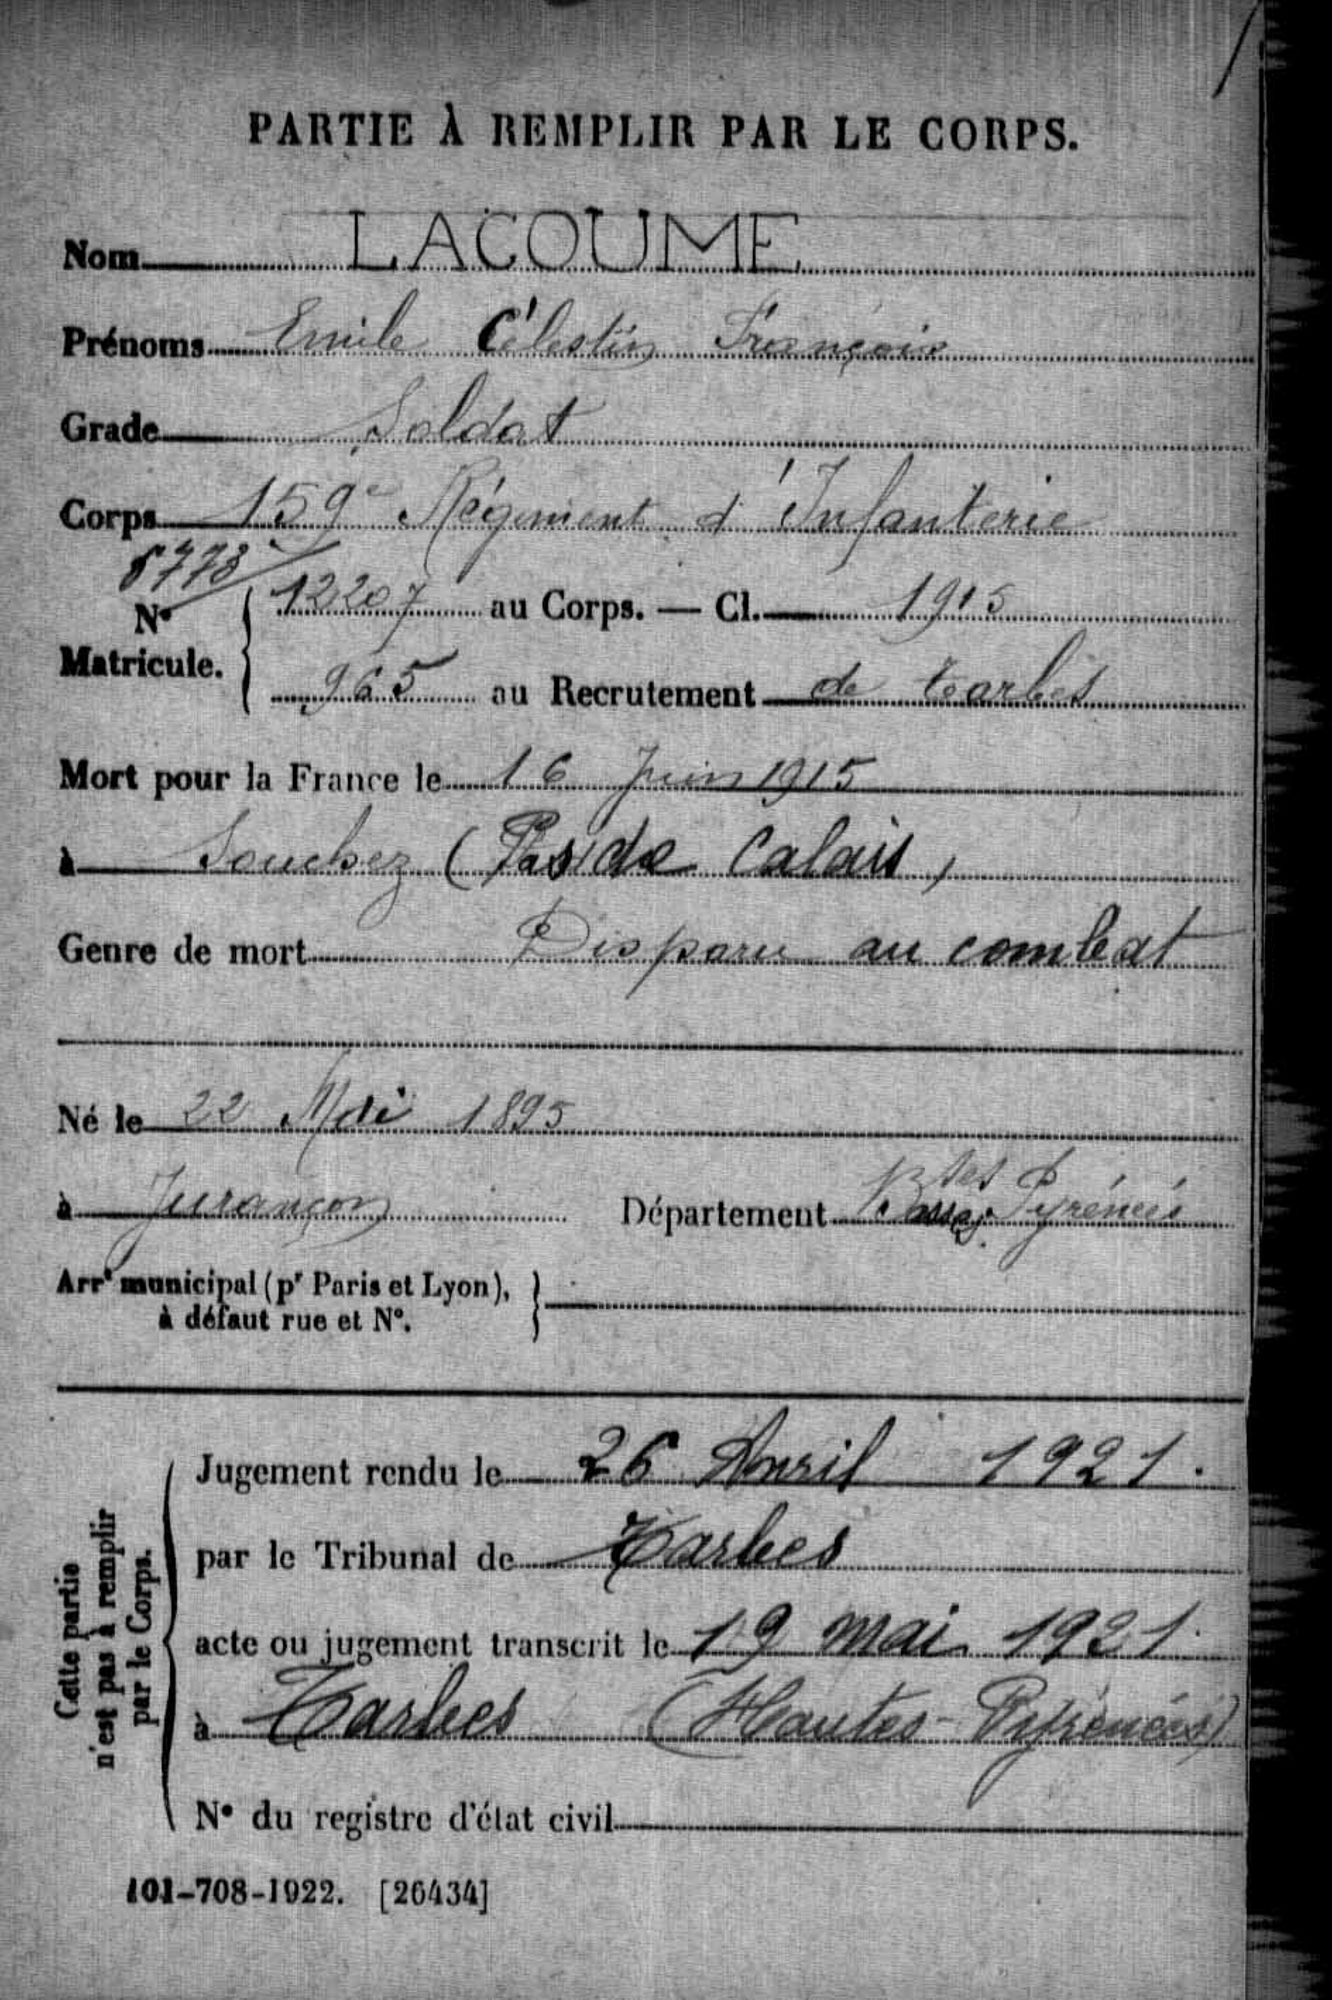 PARTIE À REMPLIR PAR LE CORPS.
Nom LACOUME
Prénoms Emile Célestin François
Grade Soldat
Corps 159e Régiment d'Infanterie
8778
12207 au Corps. — Cl. 1915
N°
Matricule.
965 au Recrutement de Tarbes
Mort pour la France le 16 Juin 1915
à Souchez (Pas de Calais)
Genre de mort Disparu au combat
Né le 22 Mai 1895
à Jurançon Département Basses Pyrénées
Arrt municipal (pr Paris et Lyon),
à défaut rue et N°.
Cette partie
n'est pas à remplir
par le Corps.
Jugement rendu le 26 Avril 1921.
par le Tribunal de Tarbes
acte ou jugement transcrit le 19 mai 1921.
à Tarbes (Hautes-Pyrénées)
N° du registre d'état civil
101-708-1922. [26434]